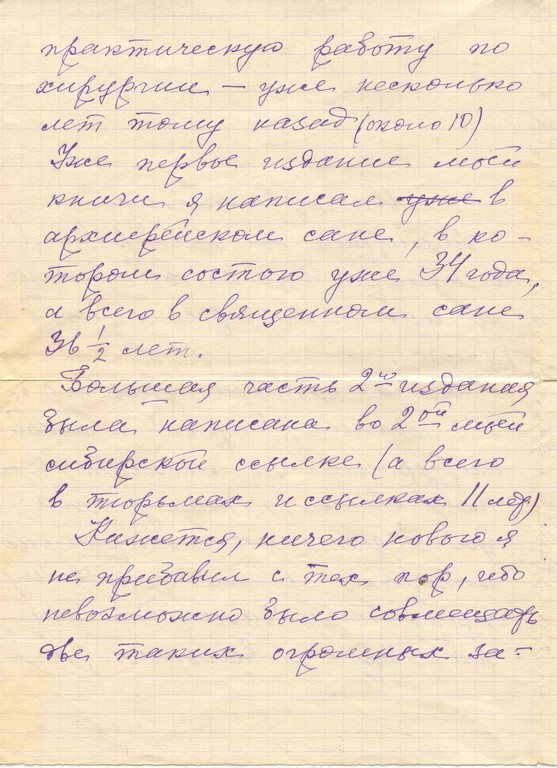 практическую работу по
хирургии — уже несколько
лет тому назад (около 10)
Уже первое издание моей
книги я написал уже в
архиерейском сане, в ко-
тором состою уже 34 года,
а всего в священном сане
36 1/2 лет.
Большая часть 2го издания
была написана во 2ой моей
сибирской ссылке (а всего
в тюрьмах и ссылках 11 лет)
Кажется, ничего нового я
не прибавил с тех пор, ибо
невозможно было совмещать
две таких огромных за-